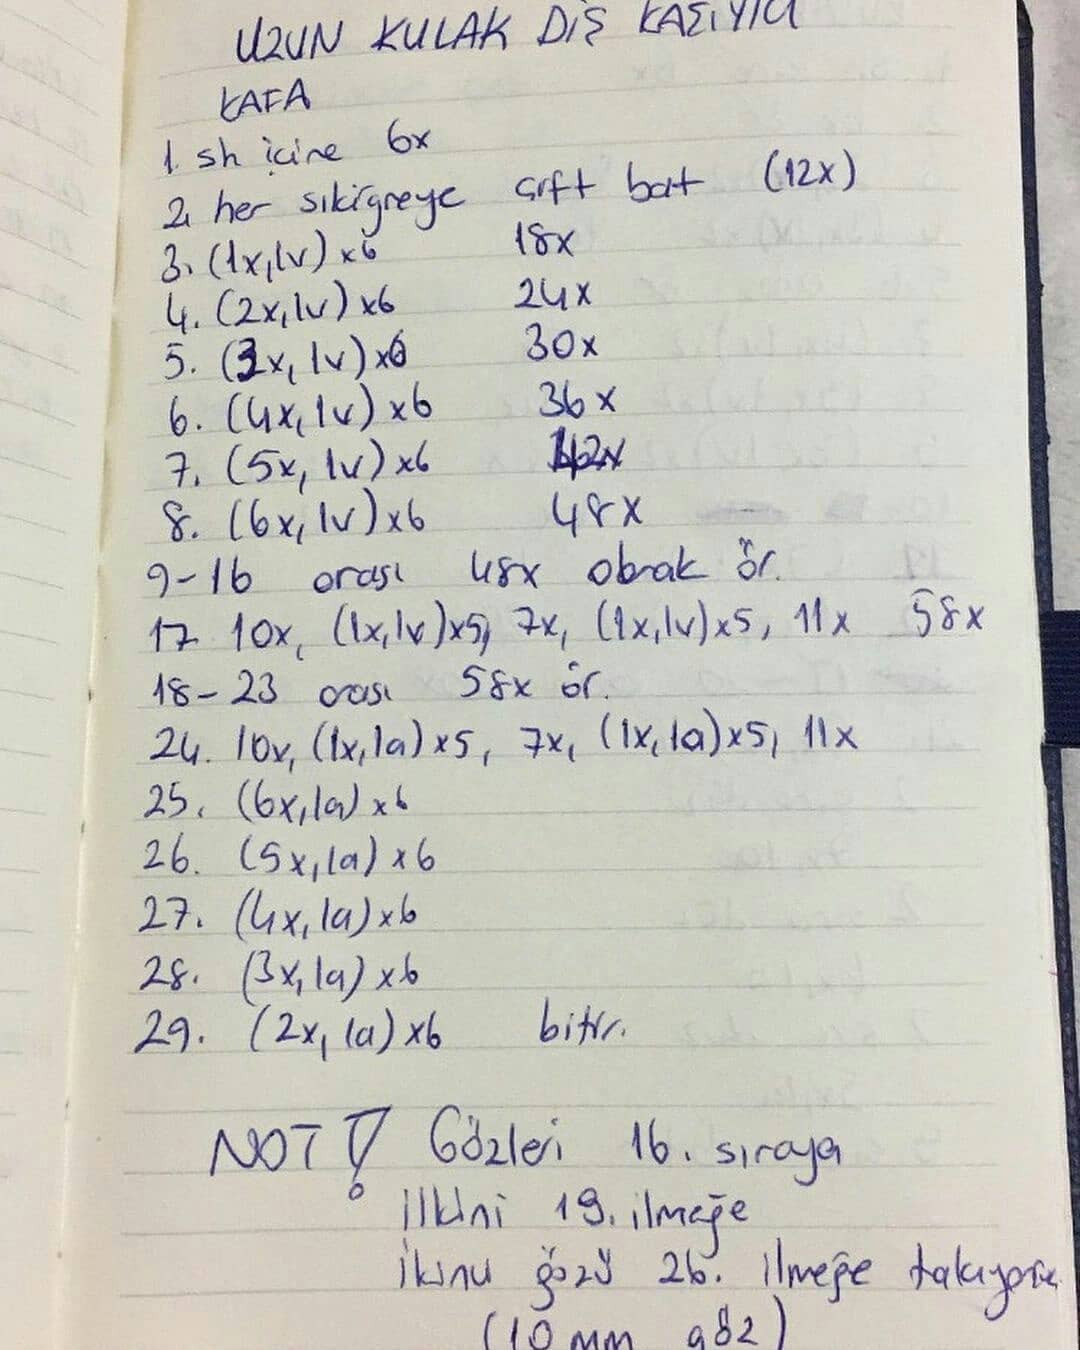 UZUN KULAK DİŞ KAŞIYICI
KAFA
1. sh içine 6x
2. her sıkiğneye çift bat (12x)
3. (1x,1v)x6 18x
4. (2x,1v)x6 24x
5. (3x,1v)x6 30x
6. (4x,1v)x6 36x
7. (5x,1v)x6 42x
8. (6x,1v)x6 48x
9-16 arası 48x olarak ör.
17 10x, (1x,1v)x5, 7x, (1x,1v)x5, 11x 58x
18-23 arası 58x ör.
24. 10x, (1x,1a)x5, 7x, (1x,1a)x5, 11x
25. (6x,1a)x6
26. (5x,1a)x6
27. (4x,1a)x6
28. (3x,1a)x6
29. (2x,1a)x6 bitir.
NOT! Gözleri 16. sıraya
ilkini 19. ilmeğe
ikinci gözü 26. ilmeğe takıyoruz
(10 mm göz)